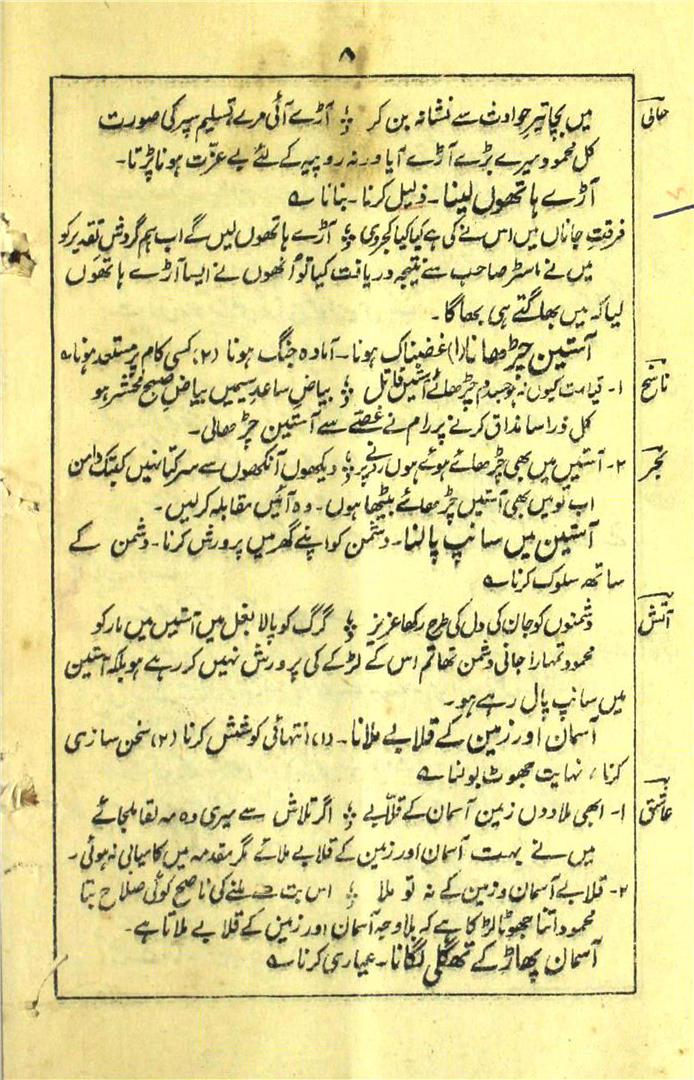 ۸
حالی
میں بچا تیرِ حوادث سے نشانہ بن کر ؎ آڑے آئی مرے تسلیم سپر کی صورت
کل محمود میرے بڑے آڑے آیا ورنہ روپیہ کے لئے بے عزّت ہونا پڑتا۔
آڑے ہاتھوں لینا۔ ذلیل کرنا۔ بنانا ؎
فرقتِ جاناں میں اس نے کی ہے کیا کیا کجروی ؎ آڑے ہاتھوں لیں گے اب ہم گردشِ تقدیر کو
میں نے ماسٹر صاحب سے نتیجہ دریافت کیا تو اُنھوں نے ایسا آڑے ہاتھوں
لیا کہ میں بھاگتے ہی بھاگا۔
آستین چڑھانا (۱) غضبناک ہونا۔ آمادہ جنگ ہونا (۲) کسی کام پر مستعد ہونا ؎
ناسخ
۱۔ قیامت کیوں نہ ہو جسدم چڑھائے آستیں قاتل ؎ بیاضِ ساعدِ سیمیں بیاضِ صبحِ محشر ہو
کل ذرا سا مذاق کرنے پر رام نے غصّے سے آستین چڑھالی۔
بحر
۲۔ آستیں میں بھی چڑھائے ہوئے ہوں رنے پر ؎ دیکھوں آنکھوں سے سرکتا نہیں کبتک دامن
اب تو میں بھی آستیں چڑھائے بیٹھا ہوں۔ وہ آئیں مقابلہ کرلیں۔
آستین میں سانپ پالنا۔ دشمن کو اپنے گھر میں پرورش کرنا۔ دشمن کے
ساتھ سلوک کرنا ؎
آتش
دشمنوں کو جان کی دل کی طرح رکھا عزیز ؎ گرگ کو پالا بغل میں آستیں میں مار کو
محمود تمہارا جانی دشمن تھا تم اس کے لڑکے کی پرورش نہیں کر رہے ہو بلکہ آستین
میں سانپ پال رہے ہو۔
آسمان اور زمین کے قلابے ملانا۔ (۱) انتہائی کوشش کرنا (۲) سخن سازی
کرنا، نہایت جھوٹ بولنا ؎
عاشق
۱۔ ابھی ملادوں زمین آسمان کے قلابے ؎ اگر تلاش سے میری وہ مہ لقا ملجائے
میں نے بہت آسمان اور زمین کے قلابے ملائے مگر مقدمہ میں کامیابی نہ ہوئی۔
۲۔ قلابے آسمان و زمین کے نہ تو ملا ؎ اس بت سے ملنے کی ناصح کوئی صلاح بتا
محمود اتنا جھوٹا لڑکا ہے کہ بلاوجہ آسمان اور زمین کے قلابے ملاتا ہے۔
آسمان پھاڑ کے تھگلی لگانا۔ عیاری کرنا ؎